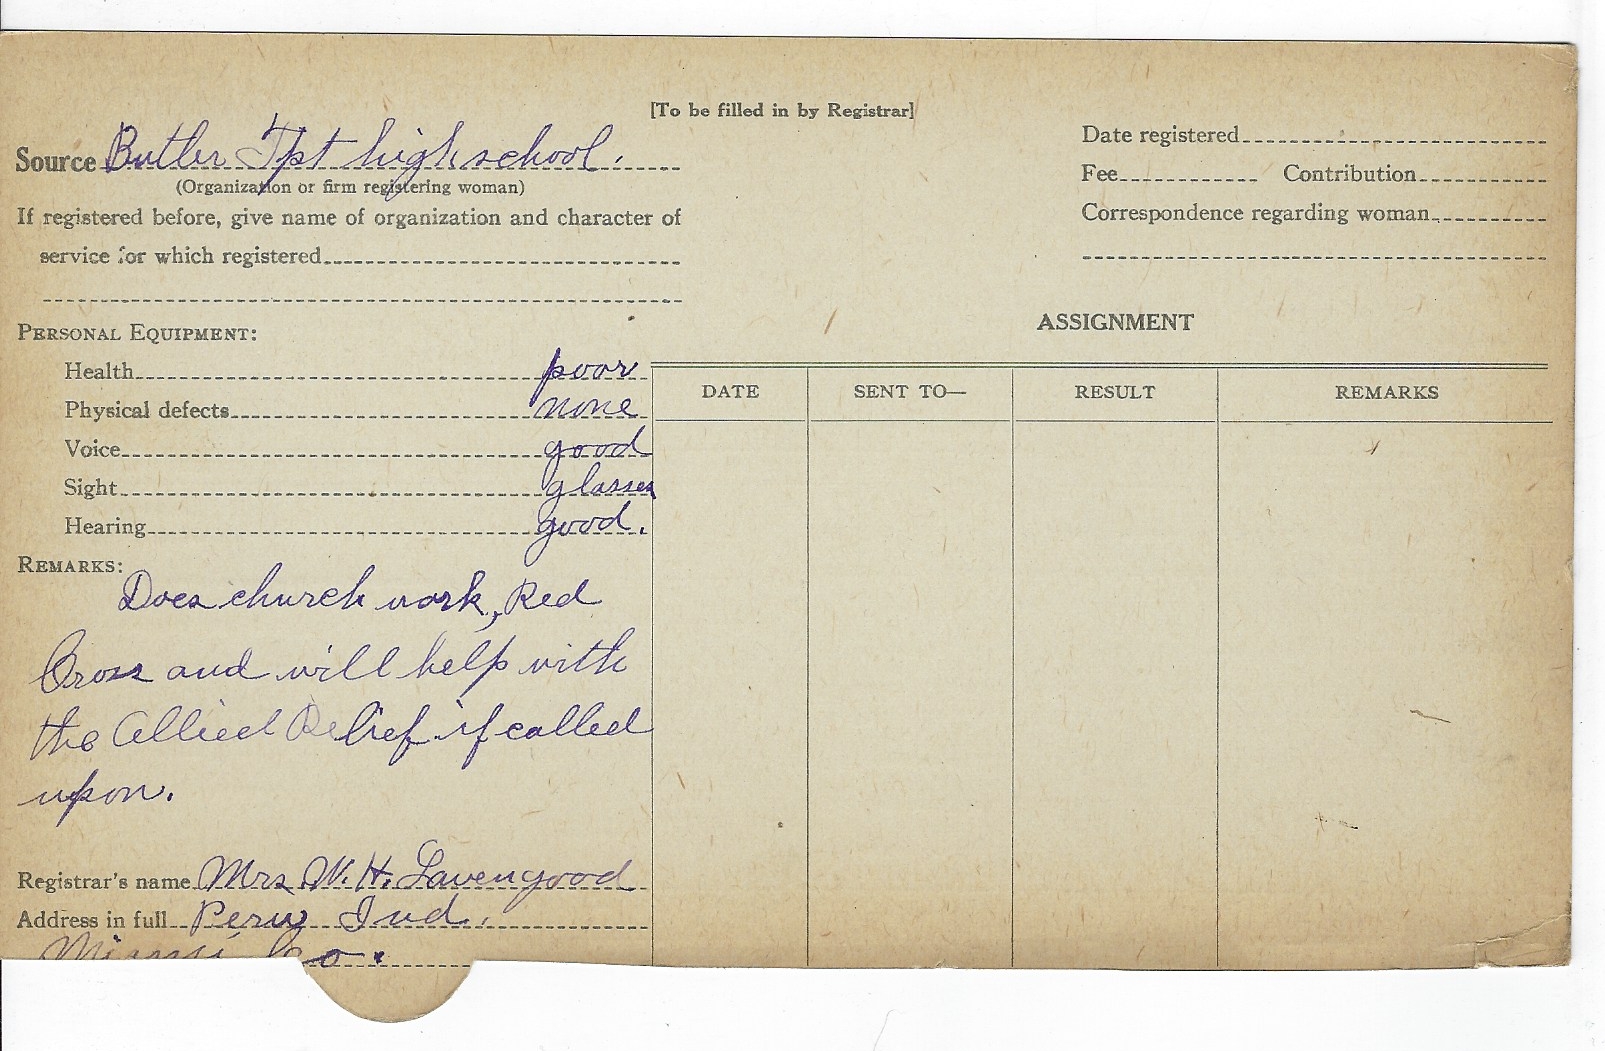 [To be filled in by Registrar]
Source Butler Tpt high school.
(Organization or firm registering woman)
If registered before, give name of organization and character of
service for which registered
Date registered
Fee Contribution
Correspondence regarding woman
PERSONAL EQUIPMENT:
Health poor
Physical defects none
Voice good
Sight glasses
Hearing good.
REMARKS:
Does church work, Red
Cross and will help with
the Allied Relief if called
upon.
Registrar's name Mrs W. H. Lavengood
Address in full Peru Ind.
Miami Co.
ASSIGNMENT
DATE SENT TO— RESULT REMARKS